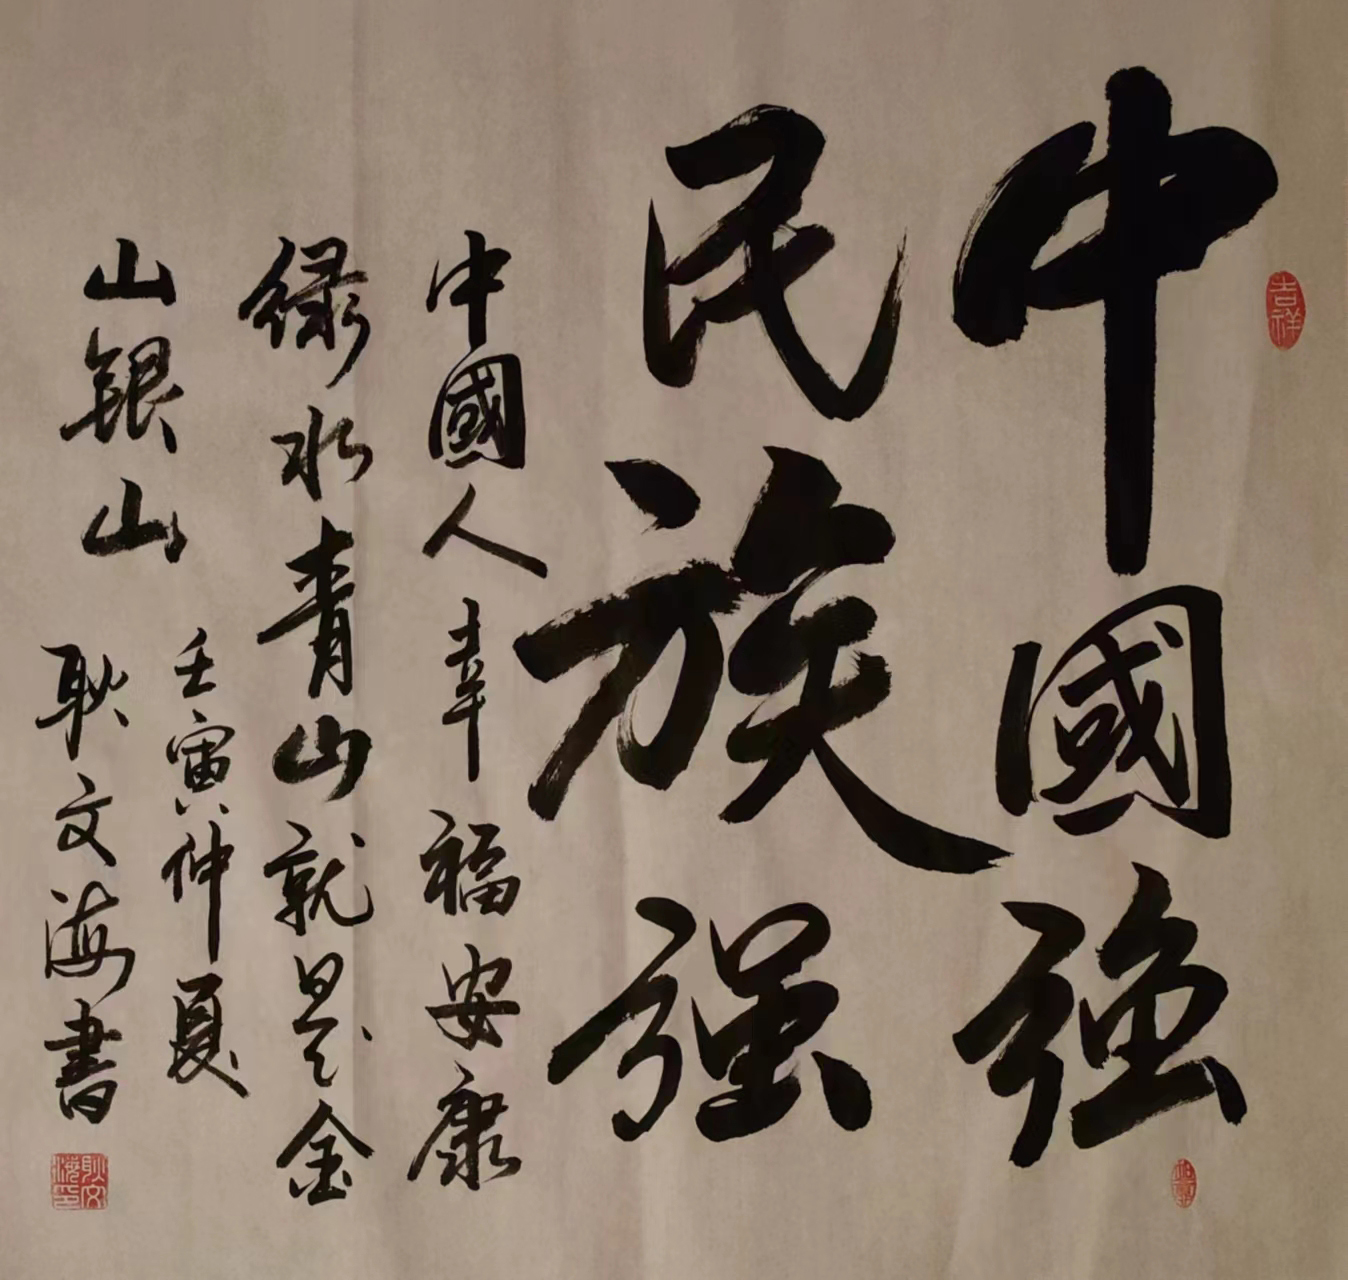 中國强
民族强
中國人幸福安康
绿水青山就是金
山銀山
壬寅仲夏
耿文海書
吉祥
耿文海印